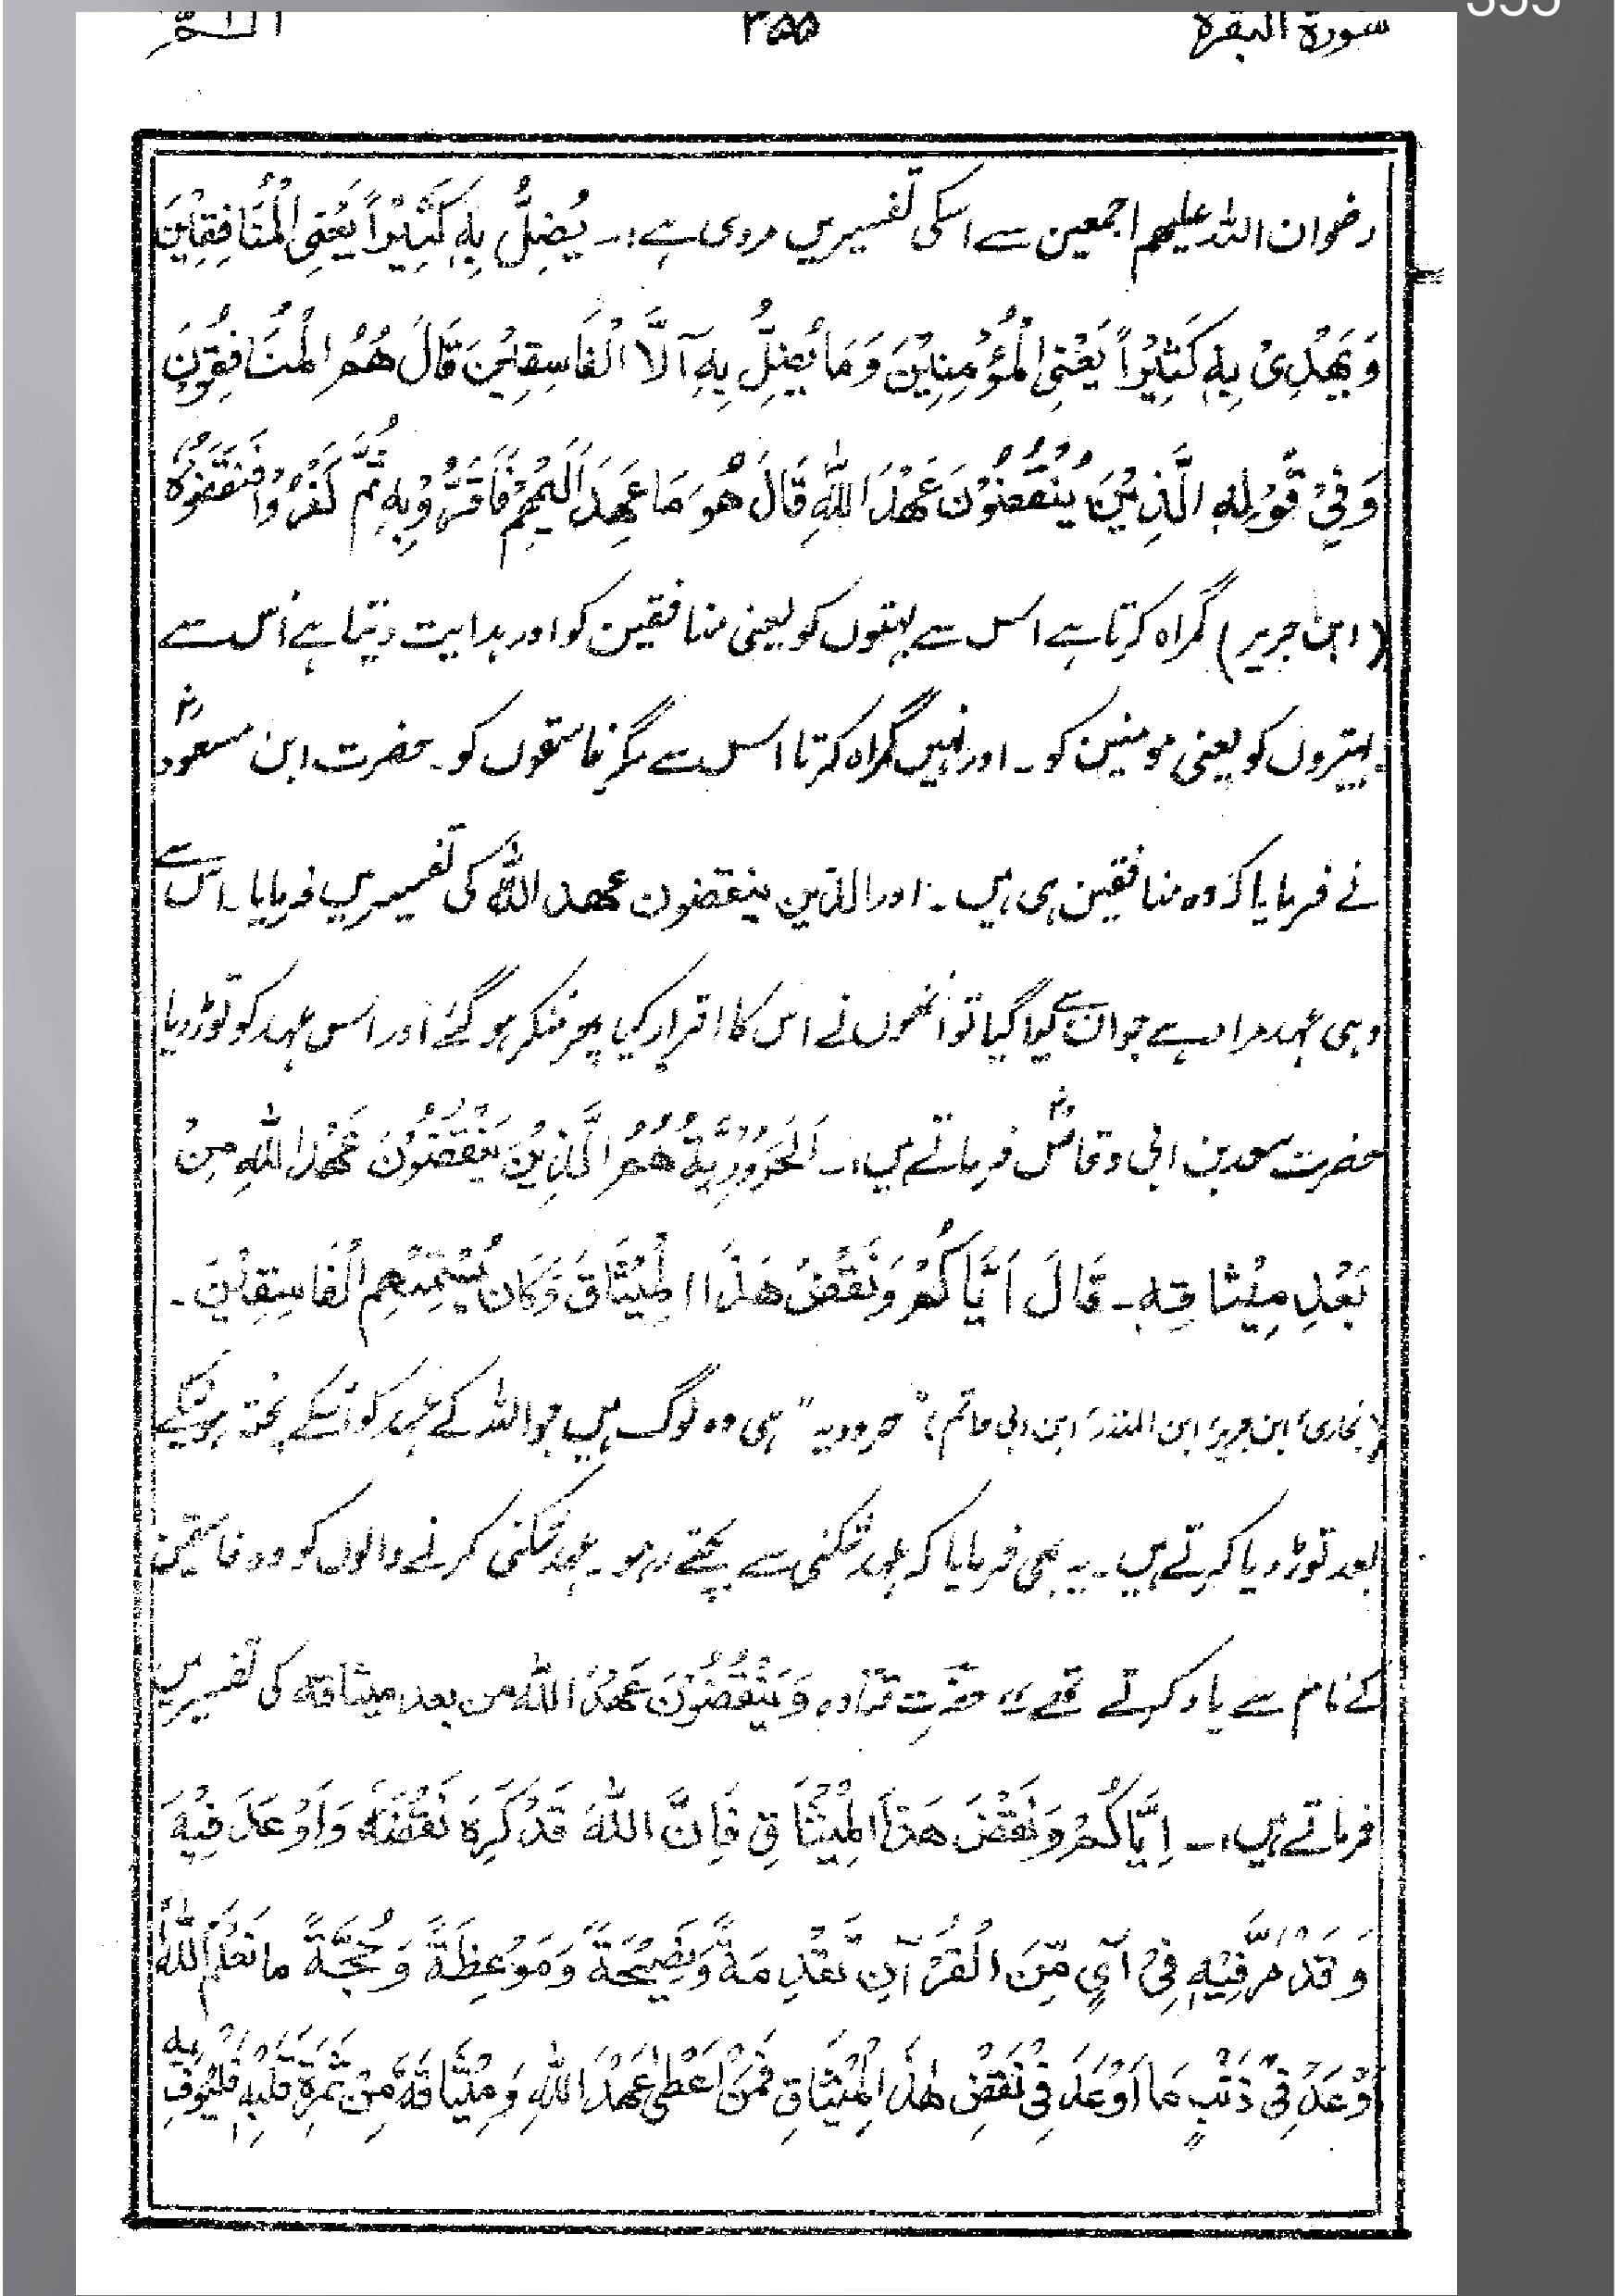 سورة البقرة ۳۵۵ الٓـمّٓ
355
رضوان اللہ علیہم اجمعین سے اسکی تفسیر میں مروی ہے:۔ یُضِلُّ بِهٖ کَثِیْراً یَعْنِی الْمُنَافِقِیْنَ
وَیَهْدِیْ بِهٖ کَثِیْراً یَعْنِی الْمُؤْمِنِیْنَ وَمَا یُضِلُّ بِهٖٓ اِلَّا الْفَاسِقِیْنَ قَالَ هُمُ الْمُنَافِقُوْنَ
وَفِیْ قَوْلِهٖ الَّذِیْنَ یَنْقُضُوْنَ عَهْدَ اللّٰهِ قَالَ هُوَ مَا عَهِدَ اِلَیْهِمْ فَاَقَرُّوْا بِهٖ ثُمَّ کَفَرُوْا فَنَقَضُوْهُ
(ابن جریر) گمراہ کرتا ہے اس سے بہتوں کو یعنی منافقین کو اور ہدایت دیتا ہے اُس سے
بہتیروں کو یعنی مومنین کو۔ اور نہیں گمراہ کرتا اس سے مگر فاسقوں کو۔ حضرت ابن مسعودؓ
نے فرمایا کہ وہ منافقین ہی ہیں۔ اور الذین ینقضون عھد اللہ کی تفسیر میں فرمایا۔ اس سے
وہی عہد مراد ہے جو ان سے کیا گیا تو انھوں نے اس کا اقرار کیا پھر منکر ہو گئے اور اس عہد کو توڑ دیا
حضرت سعد بن ابی وقاصؓ فرماتے ہیں:۔ اَلْحَرُوْرِیَّةُ هُمُ الَّذِیْنَ یَنْقُضُوْنَ عَهْدَ اللّٰهِ مِنْ
بَعْدِ مِیْثَاقِهٖ۔ قَالَ اِیَّاکُمْ وَنَقْضَ هَذَا الْمِیْثَاقَ وَکَانَ یُسَمِّیْهِمُ الْفَاسِقِیْنَ۔
(بخاری، ابن جریر، ابن المنذر، ابن ابی حاتم) "حروریہ" ہی وہ لوگ ہیں جو اللہ کے عہد کو اُسکے پختہ ہونیکے
بعد توڑ دیا کرتے ہیں۔ یہ بھی فرمایا کہ عہد شکنی سے بچتے رہو۔ عہد شکنی کرنے والوں کو وہ فاسقین
کے نام سے یاد کرتے تھے،، حضرت قتادہ وَیَنْقُضُوْنَ عَهْدَ اللّٰه من بعد میثاقه کی تفسیر میں
فرماتے ہیں:۔ اِیَّاکُمْ وَنَقْضَ هَذَا الْمِیْثَاقِ فَاِنَّ اللّٰهَ قَدْ کَرِهَ نَقْضَهٗ وَاَوْعَدَ فِیْهِ
وَقَدَّمَ فِیْهِ فِیْ آیٍ مِّنَ الْقُرْآنِ تَقْدِمَةً وَنَصِیْحَةً وَمَوْعِظَةً وَحُجَّةً مَا نَعْلَمُ اللّٰهَ
اَوْعَدَ فِیْ ذَنْبٍ مَا اَوْعَدَ فِیْ نَقْضِ هٰذَا الْمِیْثَاقِ فَمَنْ اَعْطٰی عَهْدَ اللّٰهِ وَمِیْثَاقَهٗ مِنْ ثَمَرَةِ قَلْبِهٖ فَلْیُوْفِ بِهٖ